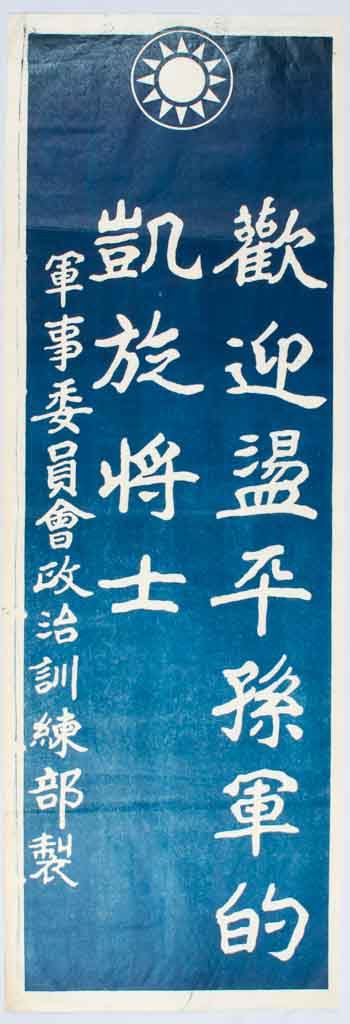 歡迎盪平孫軍的
凱旋将士
軍事委員會政治訓練部製